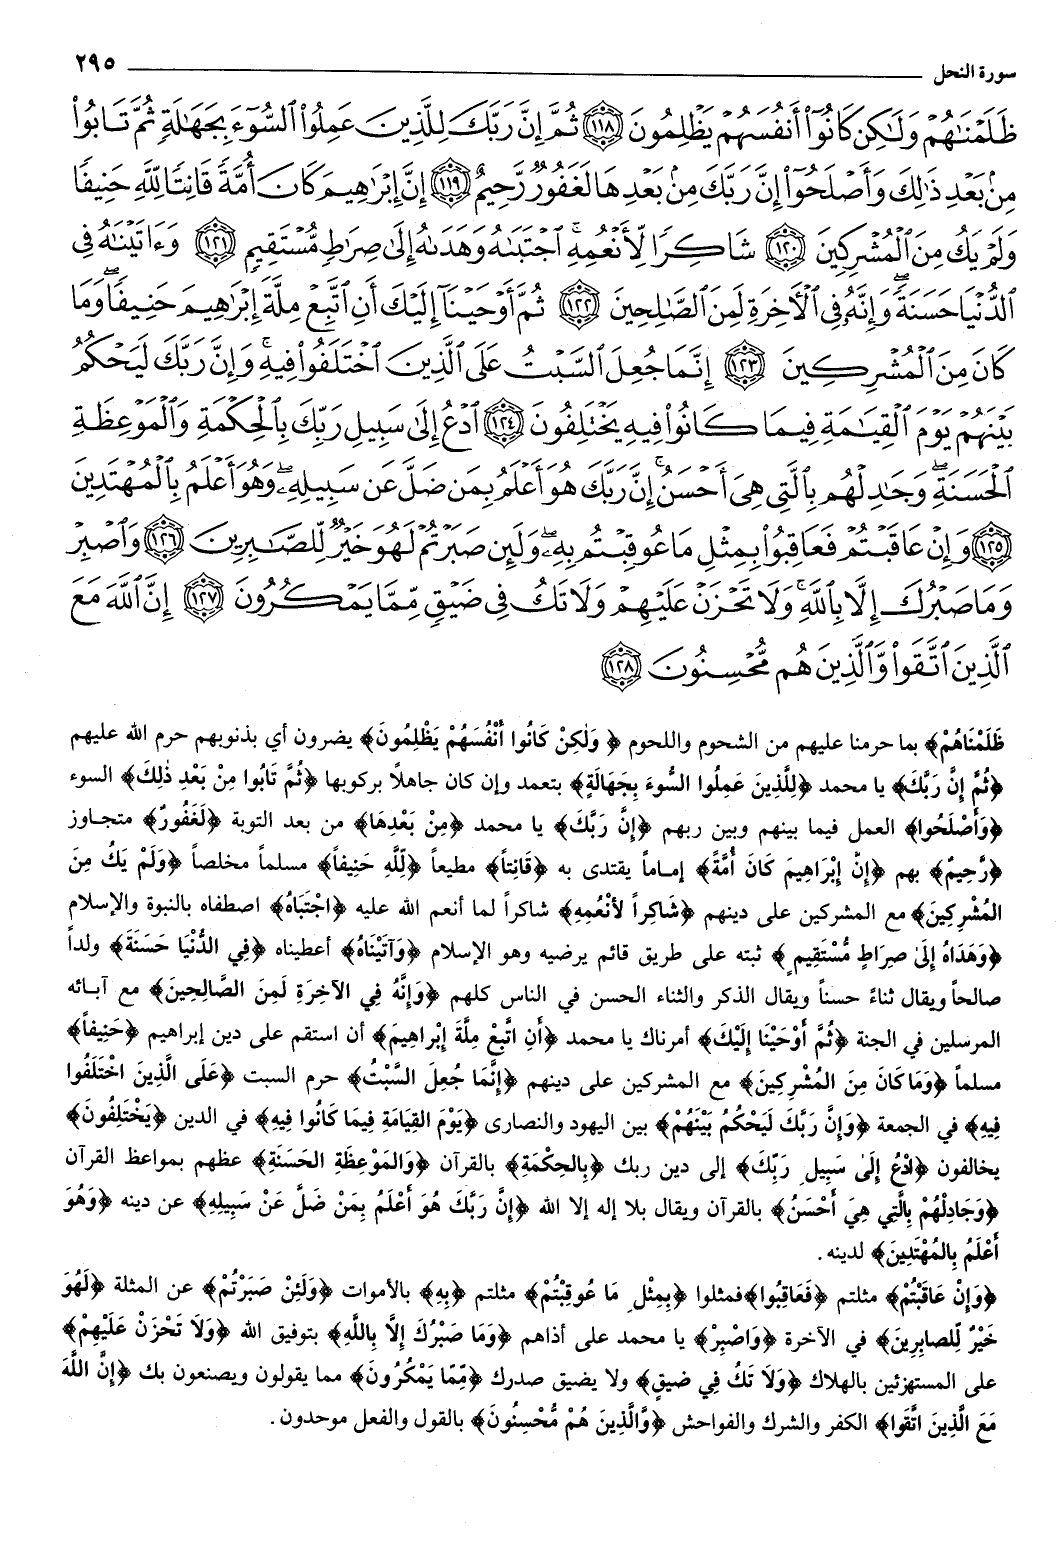 سورة النحل ٢٩٥
ظَلَمْنَٰهُمْ وَلَٰكِن كَانُوٓا۟ أَنفُسَهُمْ يَظْلِمُونَ ١١٨ ثُمَّ إِنَّ رَبَّكَ لِلَّذِينَ عَمِلُوا۟ ٱلسُّوٓءَ بِجَهَٰلَةٍ ثُمَّ تَابُوا۟
مِنۢ بَعْدِ ذَٰلِكَ وَأَصْلَحُوٓا۟ إِنَّ رَبَّكَ مِنۢ بَعْدِهَا لَغَفُورٌ رَّحِيمٌ ١١٩ إِنَّ إِبْرَٰهِيمَ كَانَ أُمَّةً قَانِتًا لِّلَّهِ حَنِيفًا
وَلَمْ يَكُ مِنَ ٱلْمُشْرِكِينَ ١٢٠ شَاكِرًا لِّأَنْعُمِهِ ۚ ٱجْتَبَىٰهُ وَهَدَىٰهُ إِلَىٰ صِرَٰطٍ مُّسْتَقِيمٍ ١٢١ وَءَاتَيْنَٰهُ فِى
ٱلدُّنْيَا حَسَنَةً ۖ وَإِنَّهُۥ فِى ٱلْءَاخِرَةِ لَمِنَ ٱلصَّٰلِحِينَ ١٢٢ ثُمَّ أَوْحَيْنَآ إِلَيْكَ أَنِ ٱتَّبِعْ مِلَّةَ إِبْرَٰهِيمَ حَنِيفًا ۖ وَمَا
كَانَ مِنَ ٱلْمُشْرِكِينَ ١٢٣ إِنَّمَا جُعِلَ ٱلسَّبْتُ عَلَى ٱلَّذِينَ ٱخْتَلَفُوا۟ فِيهِ ۚ وَإِنَّ رَبَّكَ لَيَحْكُمُ
بَيْنَهُمْ يَوْمَ ٱلْقِيَٰمَةِ فِيمَا كَانُوا۟ فِيهِ يَخْتَلِفُونَ ١٢٤ ٱدْعُ إِلَىٰ سَبِيلِ رَبِّكَ بِٱلْحِكْمَةِ وَٱلْمَوْعِظَةِ
ٱلْحَسَنَةِ ۖ وَجَٰدِلْهُم بِٱلَّتِى هِىَ أَحْسَنُ ۚ إِنَّ رَبَّكَ هُوَ أَعْلَمُ بِمَن ضَلَّ عَن سَبِيلِهِۦ ۖ وَهُوَ أَعْلَمُ بِٱلْمُهْتَدِينَ
١٢٥ وَإِنْ عَاقَبْتُمْ فَعَاقِبُوا۟ بِمِثْلِ مَا عُوقِبْتُم بِهِۦ ۖ وَلَئِن صَبَرْتُمْ لَهُوَ خَيْرٌ لِّلصَّٰبِرِينَ ١٢٦ وَٱصْبِرْ
وَمَا صَبْرُكَ إِلَّا بِٱللَّهِ ۚ وَلَا تَحْزَنْ عَلَيْهِمْ وَلَا تَكُ فِى ضَيْقٍ مِّمَّا يَمْكُرُونَ ١٢٧ إِنَّ ٱللَّهَ مَعَ
ٱلَّذِينَ ٱتَّقَوا۟ وَّٱلَّذِينَ هُم مُّحْسِنُونَ ١٢٨
ظَلَمْنَاهُمْ﴾ بما حرمنا عليهم من الشحوم واللحوم ﴿وَلٰكِنْ كَانُوا أَنْفُسَهُمْ يَظْلِمُونَ﴾ يضرون أي بذنوبهم حرم الله عليهم
﴿ثُمَّ إِنَّ رَبَّكَ﴾ يا محمد ﴿لِلَّذِينَ عَمِلُوا السُّوءَ بِجَهَالَةٍ﴾ بتعمد وإن كان جاهلاً بركوبها ﴿ثُمَّ تَابُوا مِنْ بَعْدِ ذٰلِكَ﴾ السوء
﴿وَأَصْلَحُوا﴾ العمل فيما بينهم وبين ربهم ﴿إِنَّ رَبَّكَ﴾ يا محمد ﴿مِنْ بَعْدِهَا﴾ من بعد التوبة ﴿لَغَفُورٌ﴾ متجاوز
﴿رَّحِيمٌ﴾ بهم ﴿إِنَّ إِبْرَاهِيمَ كَانَ أُمَّةً﴾ إماماً يقتدى به ﴿قَانِتاً﴾ مطيعاً ﴿لِلَّهِ حَنِيفاً﴾ مسلماً مخلصاً ﴿وَلَمْ يَكُ مِنَ
المُشْرِكِينَ﴾ مع المشركين على دينهم ﴿شَاكِراً لأَنْعُمِهِ﴾ شاكراً لما أنعم الله عليه ﴿اجْتَبَاهُ﴾ اصطفاه بالنبوة والإسلام
﴿وَهَدَاهُ إِلَىٰ صِرَاطٍ مُّسْتَقِيمٍ﴾ ثبته على طريق قائم يرضيه وهو الإسلام ﴿وَآتَيْنَاهُ﴾ أعطيناه ﴿فِي الدُّنْيَا حَسَنَةً﴾ ولداً
صالحاً ويقال ثناءً حسناً ويقال الذكر والثناء الحسن في الناس كلهم ﴿وَإِنَّهُ فِي الآخِرَةِ لَمِنَ الصَّالِحِينَ﴾ مع آبائه
المرسلين في الجنة ﴿ثُمَّ أَوْحَيْنَا إِلَيْكَ﴾ أمرناك يا محمد ﴿أَنِ اتَّبِعْ مِلَّةَ إِبْرَاهِيمَ﴾ أن استقم على دين إبراهيم ﴿حَنِيفاً﴾
مسلماً ﴿وَمَا كَانَ مِنَ المُشْرِكِينَ﴾ مع المشركين على دينهم ﴿إِنَّمَا جُعِلَ السَّبْتُ﴾ حرم السبت ﴿عَلَى الَّذِينَ اخْتَلَفُوا
فِيهِ﴾ في الجمعة ﴿وَإِنَّ رَبَّكَ لَيَحْكُمُ بَيْنَهُمْ﴾ بين اليهود والنصارى ﴿يَوْمَ القِيَامَةِ فِيمَا كَانُوا فِيهِ﴾ في الدين ﴿يَخْتَلِفُونَ﴾
يخالفون ﴿ادْعُ إِلَىٰ سَبِيلِ رَبِّكَ﴾ إلى دين ربك ﴿بِالحِكْمَةِ﴾ بالقرآن ﴿وَالمَوْعِظَةِ الحَسَنَةِ﴾ عظهم بمواعظ القرآن
﴿وَجَادِلْهُمْ بِالَّتِي هِيَ أَحْسَنُ﴾ بالقرآن ويقال بلا إله إلا الله ﴿إِنَّ رَبَّكَ هُوَ أَعْلَمُ بِمَنْ ضَلَّ عَنْ سَبِيلِهِ﴾ عن دينه ﴿وَهُوَ
أَعْلَمُ بِالمُهْتَدِينَ﴾ لدينه.
﴿وَإِنْ عَاقَبْتُمْ﴾ مثلتم ﴿فَعَاقِبُوا﴾ فمثلوا ﴿بِمِثْلِ مَا عُوقِبْتُمْ﴾ مثلتم ﴿بِهِ﴾ بالأموات ﴿وَلَئِنْ صَبَرْتُمْ﴾ عن المثلة ﴿لَهُوَ
خَيْرٌ لِّلصابِرِينَ﴾ في الآخرة ﴿وَاصْبِرْ﴾ يا محمد على أذاهم ﴿وَمَا صَبْرُكَ إِلَّا بِاللَّهِ﴾ بتوفيق الله ﴿وَلَا تَحْزَنْ عَلَيْهِمْ﴾
على المستهزئين بالهلاك ﴿وَلَا تَكُ فِي ضَيقٍ﴾ ولا يضيق صدرك ﴿مِّمّا يَمْكُرُونَ﴾ مما يقولون ويصنعون بك ﴿إِنَّ اللَّهَ
مَعَ الَّذِينَ اتَّقَوا﴾ الكفر والشرك والفواحش ﴿وَّالَّذِينَ هُمْ مُّحْسِنُونَ﴾ بالقول والفعل موحدون.